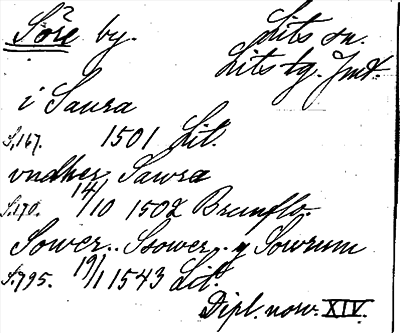 Söre by. Lits sn.
Lits tg. Jmt.
i Saura
S. 167. 1501 Lit.
vndher Sawra
S. 170. 14/10 1502 Brunflo.
Sower.. Ssower.. y Sowrum
S. 795. 19/1 1543 Lit.
Dipl. norv. XIV.